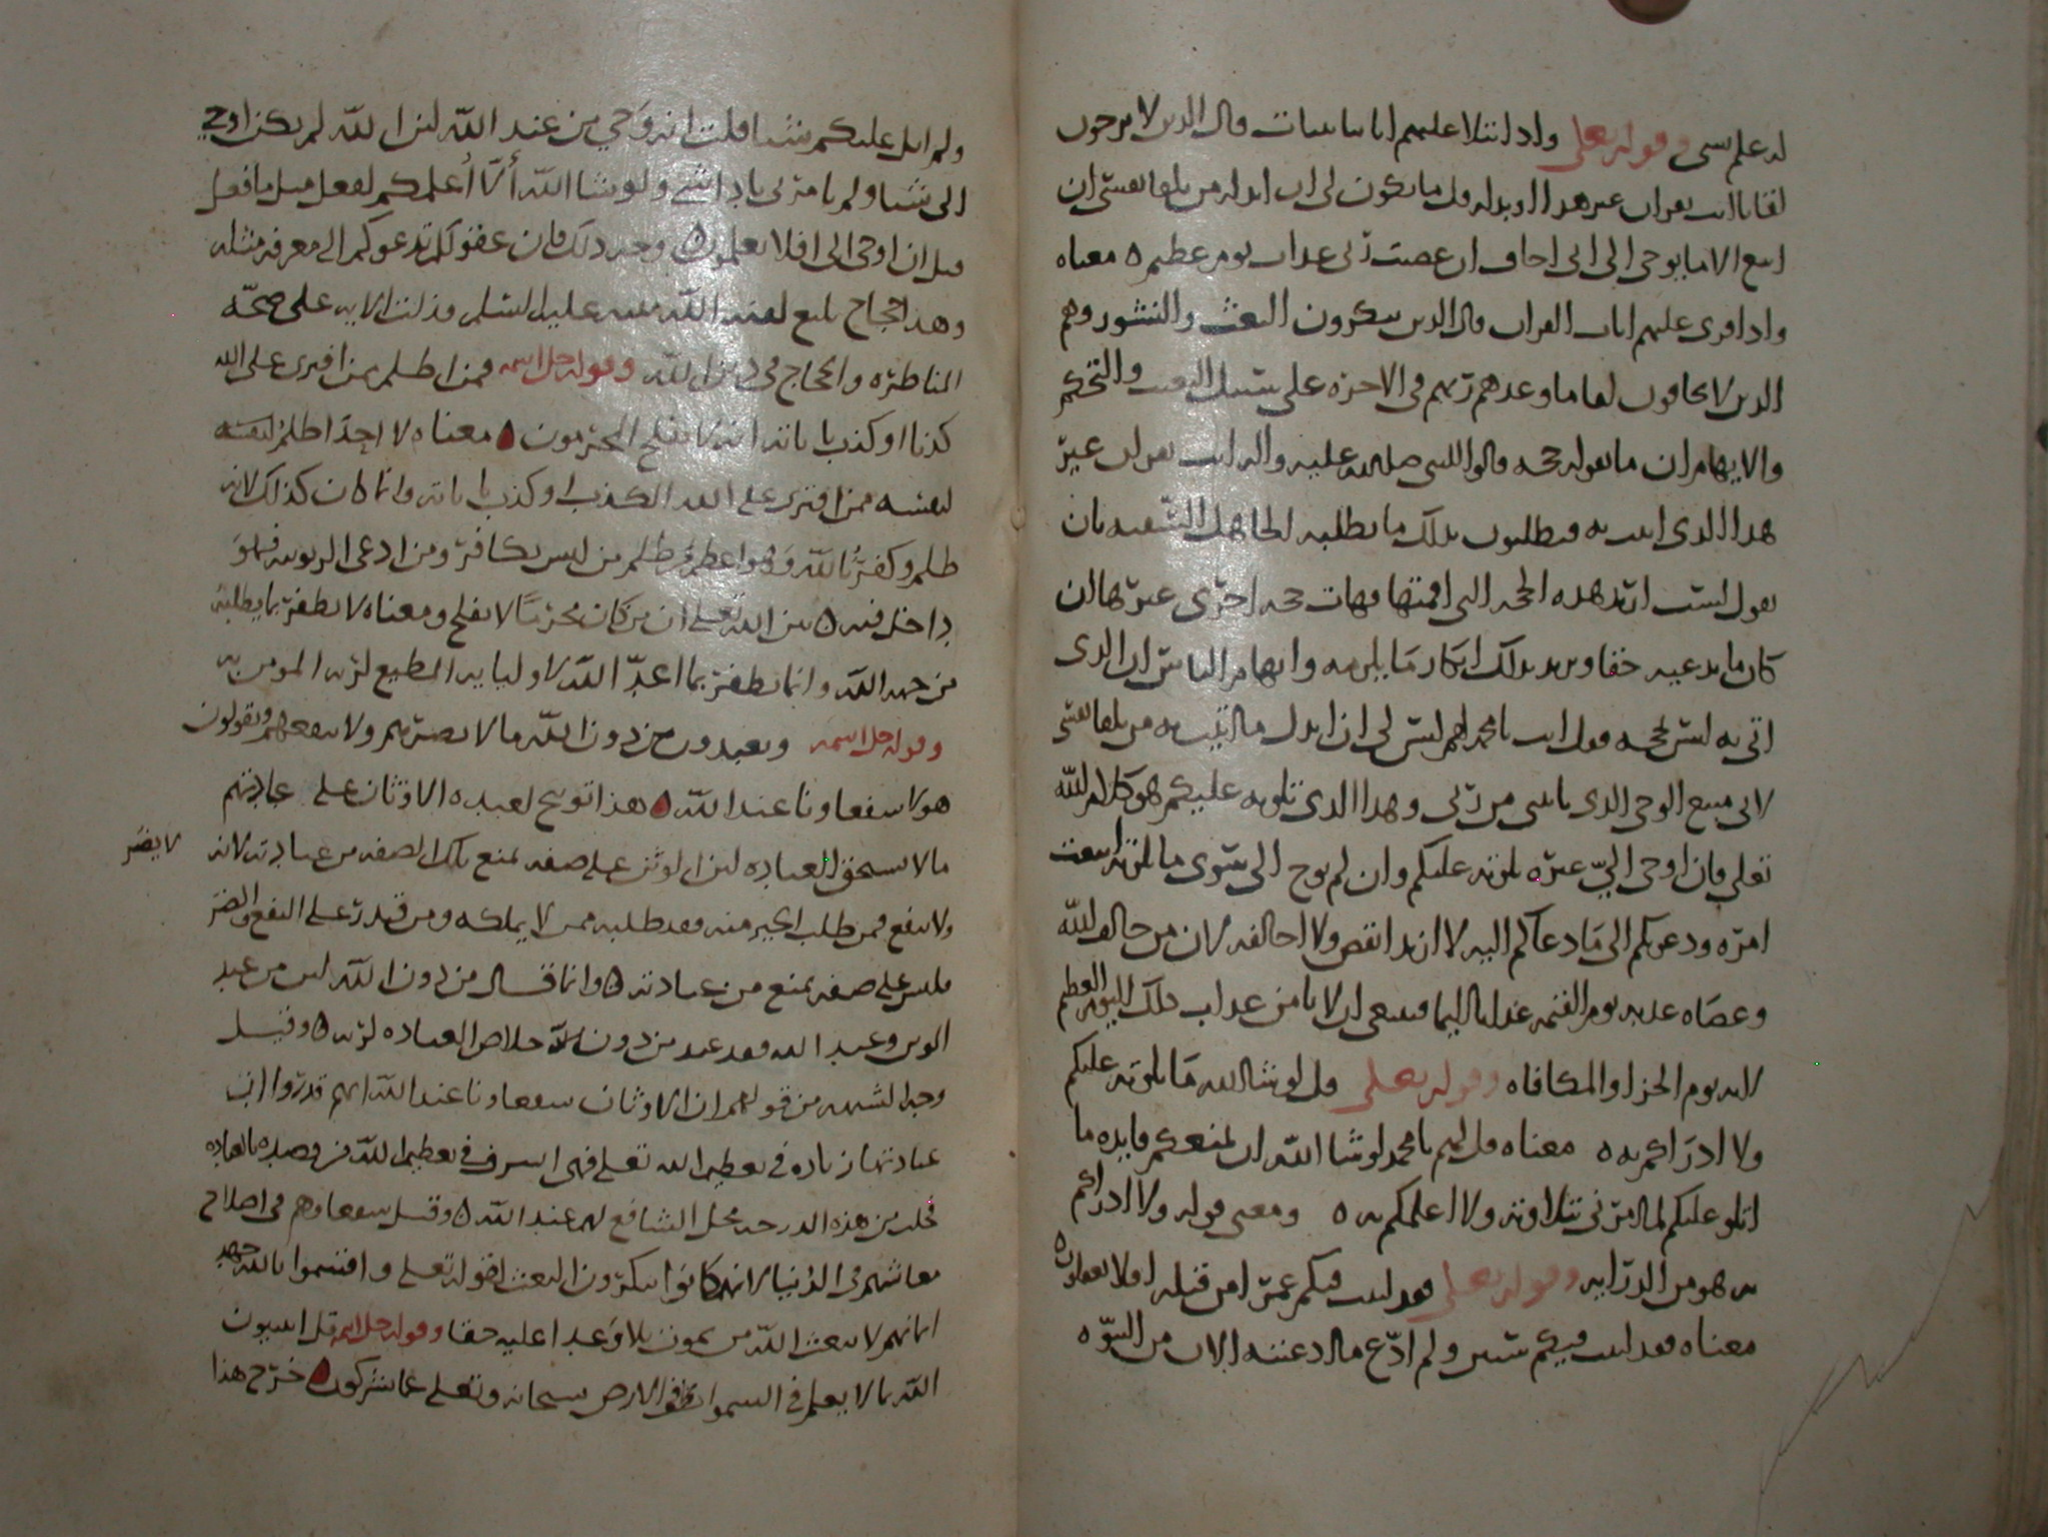 له علم بشي وقوله تعلى واذا تتلا عليهم اياتنا بينات قال الذين لا يرجون
لقانا ائت بقران غير هذا او بدله قل ما يكون لي ان ابدله من تلقا نفسي ان
اتبع الا ما يوحى الي اني اخاف ان عصيت ربي عذاب يوم عظيم ه معناه
واذا قرى عليهم ايات القران قال الذين ينكرون البعث والنشور وهم
الذين لا يخافون لقا ما وعدهم ربهم في الاخره على سبيل التعنت والتحكم
والايهام ان ما يقوله حجه قالوا للنبي صلى الله عليه واله ائت بقران غير
هذا الذي اتيت به فيطلبون بذلك ما يطلبه الجاهل السفيه بان
يقول لست اريد هذه الحجه التي اقمتها فهات حجه اخرى غيرها ان
كان ما تدعيه حقا ويريد بذلك انكار ما يلزمه وايهام الناس ان الذي
اتي به ليس بحجه فقل انت يا محمد لهم ليس لي ان ابدل ما اتيت به من تلقا نفسي
لاني متبع الوحي الذي ياتيني من ربي وهذا الذي تلوته عليكم هو كلام الله
تعلى فان اوحى الي غيره تلوته عليكم وان لم يوح الي سوى ما تلوته اتبعت
امره ودعوتكم الى ما دعاكم اليه لا ازيد انقص ولا اخالفه لان من خالف الله
وعصاه عذبه يوم القيمه عذابا اليما فينبغي ان لا يامن عذاب ذلك اليوم العظيم
لانه يوم الجزا والمكافاه وقوله تعلى قل لو شا الله ما تلوته عليكم
ولا ادراكم به ه معناه قل لهم يا محمد لو شا الله ان يمنعكم فايده ما
اتلو عليكم لما امرني بتلاوته ولا اعلمكم به ه ومعنى قوله ولا ادراكم
به هو من الدرايه وقوله تعلى فقد لبثت فيكم عمرا من قبله افلا تعقلون ه
معناه فقد لبثت فيكم سنين ولم ادع ما ادعيته الان من النبوه
ولم اتل عليكم شيئا قلت انه وحي من عند الله لان الله لم يكن اوحي
الي شيئا ولم يامرني باداشي ولو شا الله ألا أعلمكم لفعل مثل ما فعل
قبل ان اوحى الي افلا تعلمون ه وجه ذلك فان عقولكم تدعوكم الى معرفه مثله
وهذا حجاج بليغ لقنه الله نبيه عليه السلم ودلت الايه على صحه
المناظره والحجاج في دين الله وقوله جل اسمه فمن اظلم ممن افترى على الله
كذبا او كذب باياته انه لا يفلح المجرمون ه معناه لا احد اظلم لنفسه
لنفسه ممن افترى على الله الكذب او كذب باياته وانما كان كذلك لانه
ظلم وكفر بالله وهو اعظم من ظلم من ليس بكافر ومن ادعى الربوبيه فهو
داخل فيه ه بين الله تعلى ان من كان مجرما لا يفلح ومعناه لا يظفر بما يطلبه
من جهه الله وانما يظفر بما اعد الله لاوليايه المطيع لربه المومن به
وقوله جل اسمه ويعبدون من دون الله ما لا يضرهم ولا ينفعهم ويقولون
هولا شفعاونا عند الله ه هذا توبيخ لعبده الاوثان على عبادتهم
ما لا يستحق العباده لان الوثن على صفه تمنع تلك الصفه من عبادته لانه لا يضر
ولا ينفع فمن طلب الخير منه فقد طلبه ممن لا يملكه ومن قدر على النفع والضر
فليس على صفه تمنع من عبادته ه وانما قال من دون الله لان من عبد
الوثن وعبد الله فقد عبد من دون الله خلاص العباده لربه ه وقيل
وجه الشبهه من قولهم ان الاوثان شفعاونا عند الله انهم قدروا ان
عبادتها زياده في تعظيم الله تعلى فهي اشرف في تعظيم الله من قصده بالعباده
فحلت من هذه الدرجه محل الشافع لهم عند الله ه وقيل شفعاوهم في اصلاح
معاشهم في الدنيا لانهم كانوا ينكرون البعث لقوله تعلى واقسموا بالله جهد
ايمانهم لا يبعث الله من يموت بلا وعدا عليه حقا وقوله جل اسمه قل اتنبيون
الله بما لا يعلم في السموات ولا في الارض سبحانه وتعلى عما يشركون ه خرج هذا